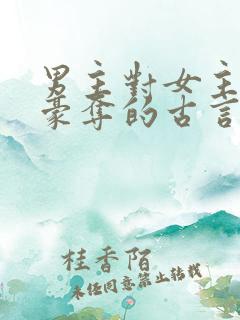 男主對女主
豪奪的古言
桂香陌
未經同意禁止轉載